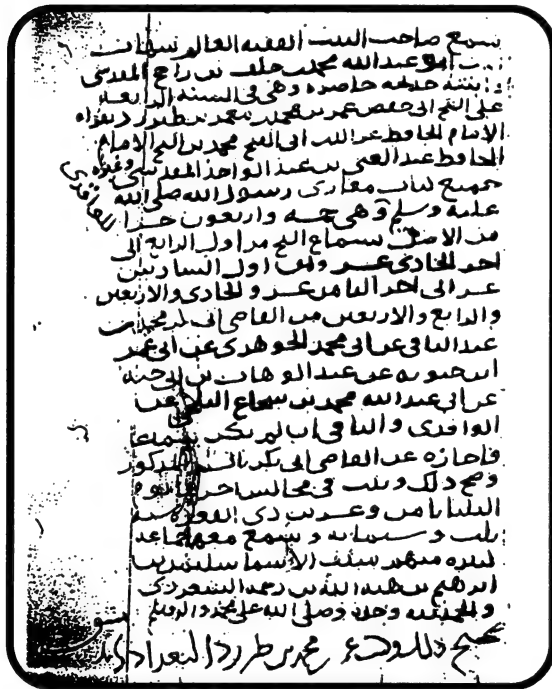 سمع صاحب الثبت الفقيه العالم
ابو عبد الله محمد بن خلف بن راجح المقدسي
وابنته خديجة حاضرة وهي في السنة الرابعة
على الشيخ ابي حفص عمر بن محمد بن معمر بن طبرزد بقراه
الامام الحافظ عز الدين ابي الفتح محمد بن الشيخ الامام
الحافظ عبد الغني بن عبد الواحد المقدسي وغيره
جميع كتاب مغازي رسول الله صلى الله
للواقدي
عليه وسلم وهي خمسة واربعون جزا
من الاصل سماع الشيخ من اول الرابع الى
اخر الحادي عشر ومن اول السادس
عشر الى اخر الثامن عشر والحادي والاربعين
والرابع والاربعين من القاضي ابي بكر محمد بن
عبد الباقي عن ابي محمد الجوهري عن ابي عمر
ابن حيويه عن عبد الوهاب بن ابي حية
عن ابي عبد الله محمد بن شجاع الثلجي عن
الواقدي والباقي ان لم يكن سماعا
فاجازه عن القاضي ابي بكر المذكور
وصح ذلك وثبت في مجالس اخرها يوم
الثلثا ثامن وعشرين ذي القعدة سنة
ثلث وستمائة وسمع معهما جماعة
ابرهيم بن هبة الله بن رحمة
والحمد لله وحده وصلى الله على محمد واله وسلم
صحيح ذلك وكتب عمر بن محمد بن طبرزد البغدادي